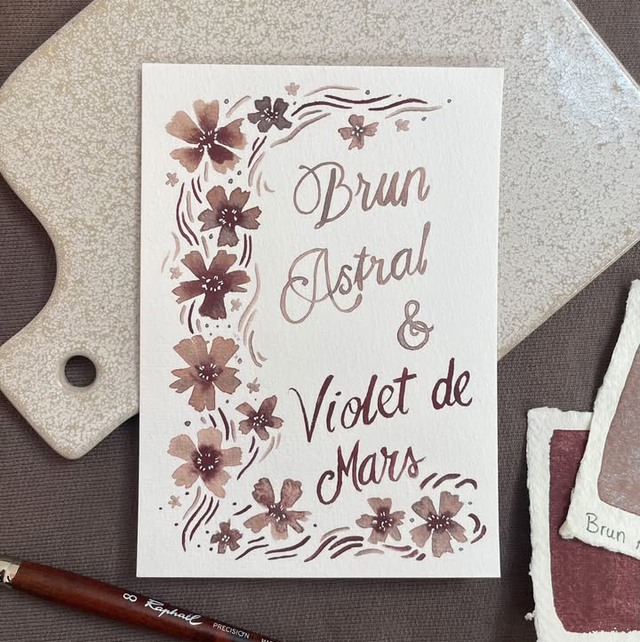 Brun
Astral
&
Violet de
Mars
Brun
8 Raphaël PRECISION